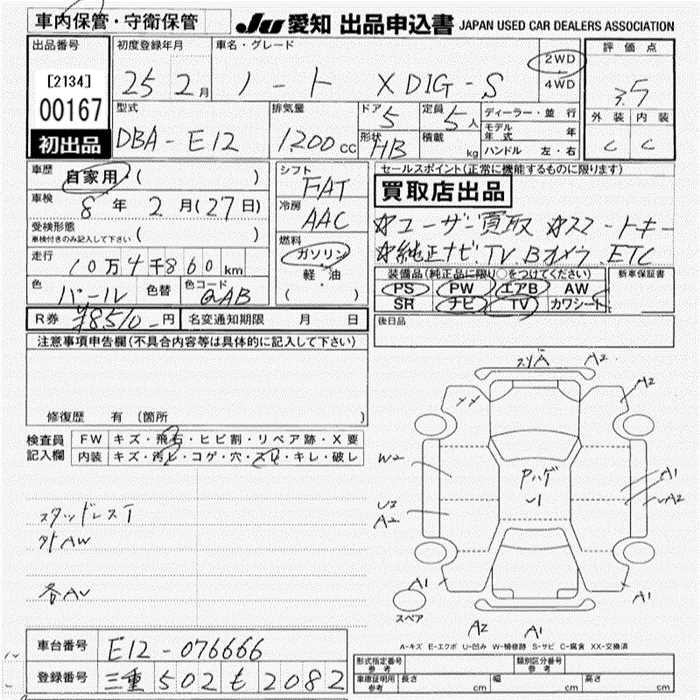 車内保管・守衛保管
JU 愛知 出品申込書 JAPAN USED CAR DEALERS ASSOCIATION
出品番号
[2134]
00167
初出品
初度登録年月
25 2月
車名・グレード
ノート X DIG-S
2WD
4WD
評価点
3.5
外装 内装
C C
型式
DBA-E12
排気量
1200cc
ドア 5
形状 HB
定員 5人
積載 kg
ディーラー・並行
モデル年式 年
ハンドル 左・右
車歴 自家用・( )
車検 8年 2月(27日)
受検形態
車検付きのみ記入して下さい ( )
走行 10万4千860km
色 パール 色替 色コード QAB
シフト FAT
冷房 AAC
燃料
ガソリン
軽・油
( )
セールスポイント(正常に機能するものに限ります)
買取店出品
☆ユーザー買取 ☆スマートキー
☆純正ナビ.TV.Bカメラ.ETC
装備品(純正品に限り○をつけてください)
PS PW エアB AW
SR ナビ TV カワシート
新車保証書
後日品
R券 ¥8,510-円 名変通知期限 月 日
注意事項申告欄(不具合内容等は具体的に記入して下さい)
修復歴 有(箇所 )
検査員記入欄
FW キズ・飛石・ヒビ割・リペア跡・X要
内装 キズ・汚レ・コゲ・穴・スレ・キレ・破レ
スタッドレスT
外AW
各AU
A2
A2
XX
W2
Pハゲ
U1
A1
UA2
U2
A2
A1
A1
スペア
A2
A1
A-キズ E-エクボ U-凹み W-補修跡 S-サビ C-腐食 XX-交換済
車台番号 E12-076666
登録番号 三重 502 も 2082
形式指定番号 参考
類別区分番号 参考
車庫証明用 参考 長さ cm 幅 cm 高さ cm